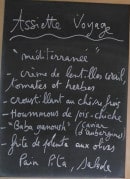 Assiette Voyage
"méditerranée"
- crème de lentilles corail,
tomates et herbes
- croustillant au chèvre frais
- Hoummous de pois-chiche
- "Baba ganoush" (caviar
d'aubergine)
- frite de polenta aux olives
Pain Pita, Salade